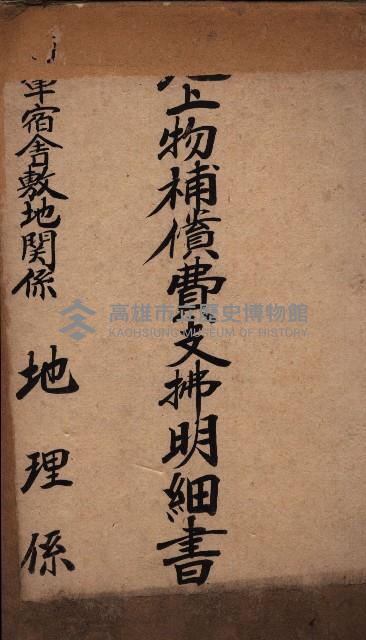 地上物補償費支拂明細書
軍宿舎敷地関係 地理係
高雄市立歷史博物館
KAOHSIUNG MUSEUM OF HISTORY